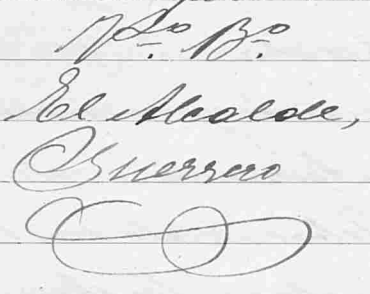 Vº. Bº.
El Alcalde,
Guerrero